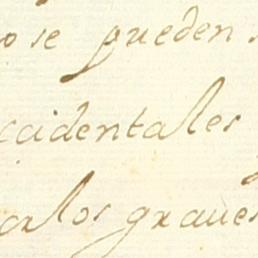 o se pueden
ccidentales
los graues